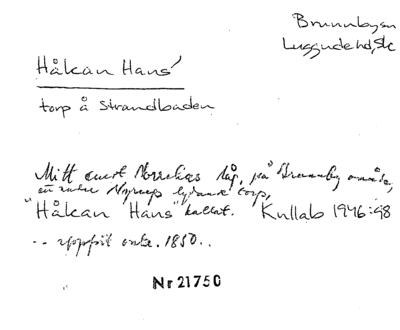 Brunnbysn
Luggude hd, Sk
Håkan Hans'
torp å Strandbaden
Mitt emot Norrelias låg, på Brunnby område,
ett under Nyrup lydande torp,
"Håkan Hans" kallat. Kullab 1946:98
-- uppfört omkr. 1850..
Nr 21750